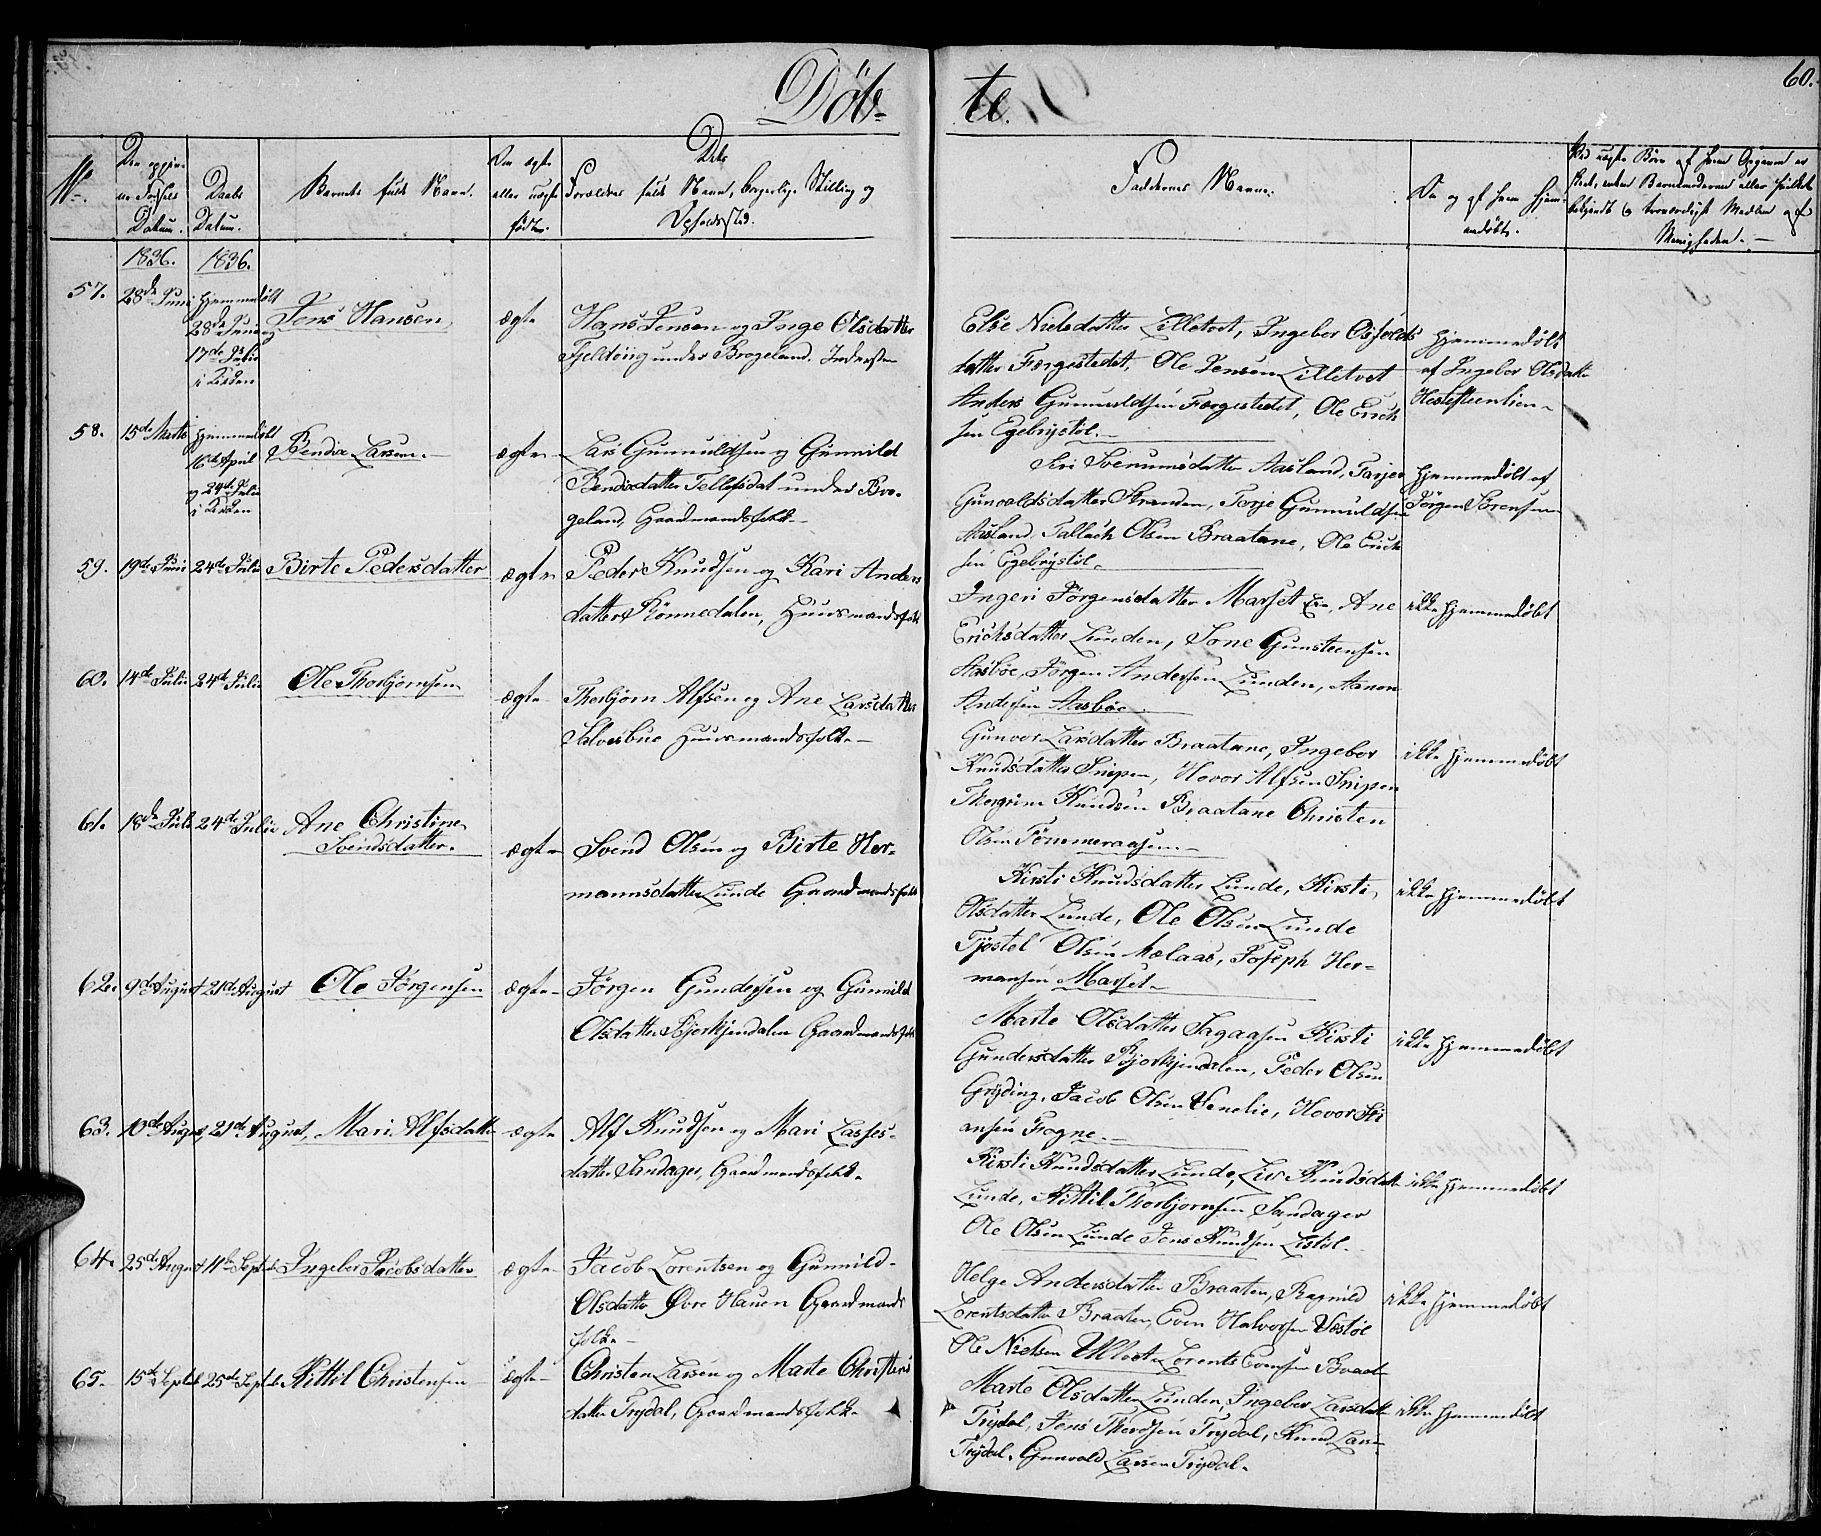 Døb-
te.
60.
No.
Den opgivne Fødsels Datum.
Daabs Datum.
Barnets fulde Navn.
Om ægte eller uægte født.
Dets Forældres fulde Navn, borgerlige Stilling og Opholdssted.
Faddernes Navne.
Om og af hvem hjemmedøbt.
1836.
1836.
57.
28de Juni
Hjemmedøbt
28de Juni og
17de Julii
i Kirken
Jens Hansen
ægte
Hans Jensen og Inge Olsdatter
under Brogeland. Inderster
Else Nielsdatter Lilletvet, Ingebor
datter Færgestedet, Ole Jensen Lilletvet
Anders Gunnuldsen Færgestedet, Ole Erich
sen Egebrystöl.
Hjemmedøbt
af Ingebor Olsdatter
58.
15de Marts
hjemmedøbt
16de April
og 24de Julii
i Kirken
Bendix Larsen
ægte
Lars Gunnuldsen og Gunnild
Bendixdatter under Bro-
geland, Gaardmandsfolk
Aasland, Tarjer
Gunvaldsdatter Stranden, Torje Gunnuldsen
Aasland, Tallach Olsen Braatane, Ole Erich
sen Egebrystöl.
Hjemmedøbt af
Jörgen Sörensen
59.
19de Juni
24de Julii
Birte Pedersdatter
ægte
Peder Knudsen og Kari Anders
datter Rönnedalen, Huusmandsfolk
Ingeri Jörgensdatter Marset, Ane
Erichsdatter Lunden, Sone Gunsteensen
Aasböe, Jörgen Andersen Lunden, Aanon
Andersen Aasböe.
ikke hjemmedøbt
60.
14de Julii
24de Julii
Ole Thorbjornsen
ægte
Thorbjorn Alfsen og Ane Larsdatter
Salvesbue Huusmandsfolk
Gunvor Larsdatter Braatane, Ingebor
Knudsdatter Snipen, Hovor Alfsen Snipen
Thorgrim Knudsen Braatane Christen
Olsen Tömmeraasen
ikke hjemmedøbt
61.
18de Juli
24de Julii
Ane Christine
Svendsdatter.
ægte
Svend Olsen og Birte Her-
mannsdatter Lunde Gaardmandsfolk
Kirsti Knudsdatter Lunde, Kirsti
Olsdatter Lunde, Ole Olsen Lunde
Tjöstel Olsen Mælaas, Joseph Her-
mansen Marset
ikke hjemmedøbt
62.
9de August
21de August
Ole Jörgensen
ægte
Jörgen Gundersen og Gunnild
Olsdatter Bjorkjendalen Gaardmandsfolk
Marte Olsdatter Sagaasen Kirsti
Gundersdatter Bjorkjendalen, Peder Olsen
Gryding, Jacob Olsen Venelie, Hovor
ansen Fragne.
ikke hjemmedøbt
63.
10de August
21de August,
Mari Alfsdatter
ægte
Alf Knudsen og Mari Lasses-
datter Sandager, Gaardmandsfolk.
Kirsti Knudsdatter Lunde, Liv Knudsdatter
Lunde, Kittil Thorbjornsen Sandager
Ole Olsen Lunde Jens Knudsen Listöl.
ikke hjemmedøbt
64.
25de August
11te Septbr
Ingebor Jacobsdatter
ægte
Jacob Lorentsen og Gunnild-
Olsdatter Övre Hauen Gaardmands
folk.
Helge Andersdatter Braaten, Ragnild
Lorentsdatter Braaten, Even Halvorsen Væstöl
Ole Nielsen Lorents Evensen Braaten
ikke hjemmedøbt
65.
15de Septbr
25de Septbr
Kittil Christensen
ægte
Christen Larsen og Marte Christens
datter Trydal, Gaardmandsfolk.
Marte Olsdatter Lunden, Ingebor Larsdatter
Trydal, Jens Trydal, Knud Larsen
Trydal, Gunvald Larsen Trydal.
ikke hjemmedøbt